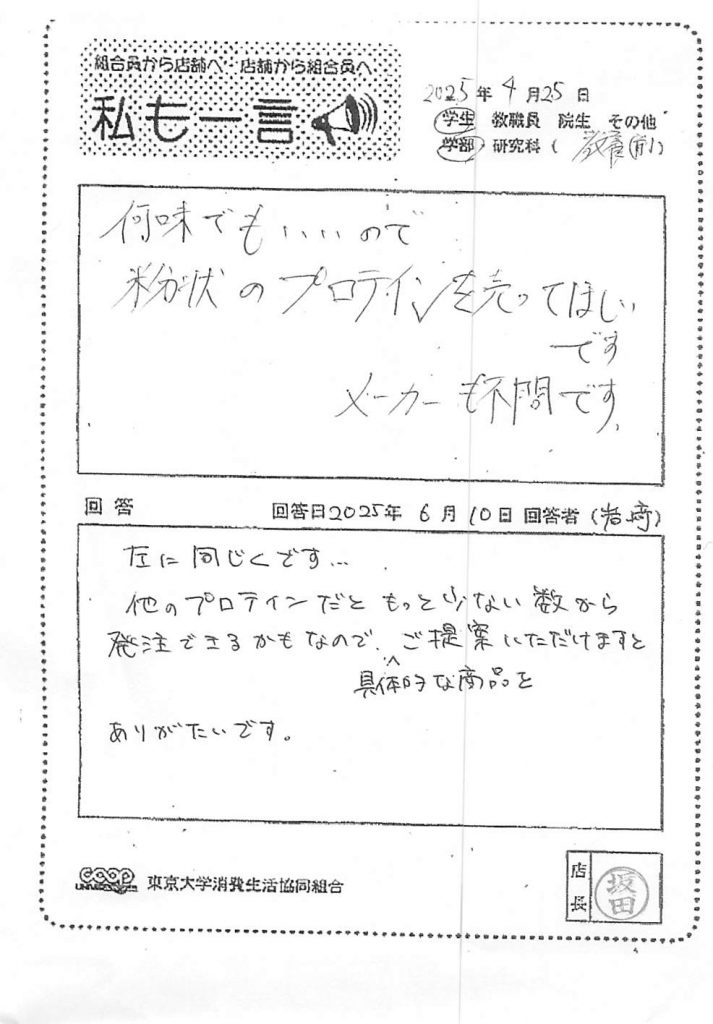 組合員から店舗へ・店舗から組合員へ
私も一言
2025年4月25日
学生 教職員 院生 その他
学部 研究科 (教養(前))
何味でもいいので
粉状のプロテインを売ってほしい
です
メーカーも不問です。
回答 回答日2025年6月10日 回答者(岩崎)
左に同じくです…
他のプロテインだと もっと少ない数から
発注できるかもなので、ご提案いただけますと
具体的な商品を
ありがたいです。
coop
UNIVERSITY
東京大学消費生活協同組合
店長
坂田